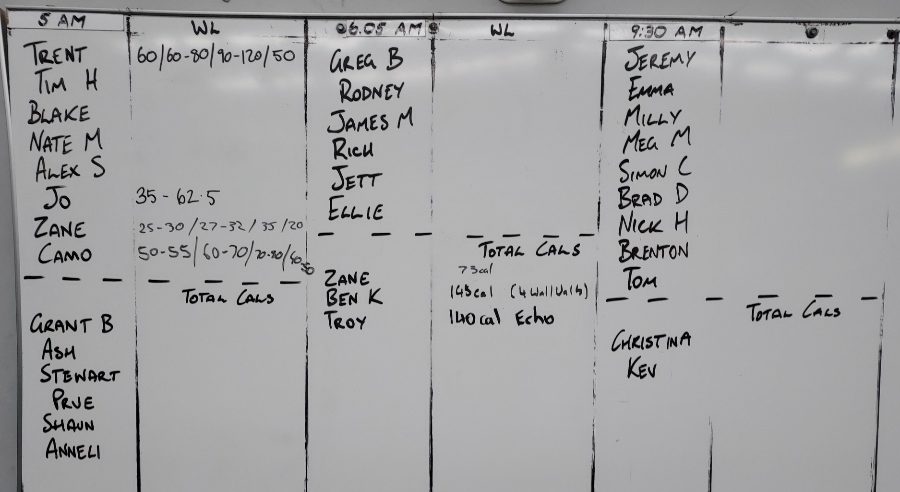 5 AM
WL
TRENT 60/60-80/90-120/50
TIM H
BLAKE
NATE M
ALEX S
JO 35-62.5
ZANE 25-30/27-32/35/20
CAMO 50-55/60-70/70-80/
TOTAL CALS
GRANT B
ASH
STEWART
PRUE
SHAUN
ANNELI
06.05 AM
WL
GREG B
RODNEY
JAMES M
RICH
JETT
ELLIE
TOTAL CALS
ZANE 73cal
BEN K 145cal
TROY 140cal Echo
9:30 AM
JEREMY
EMMA
MILLY
MEG M
SIMON C
BRAD D
NICK H
BRENTON
TOM
TOTAL CALS
CHRISTINA
KEV